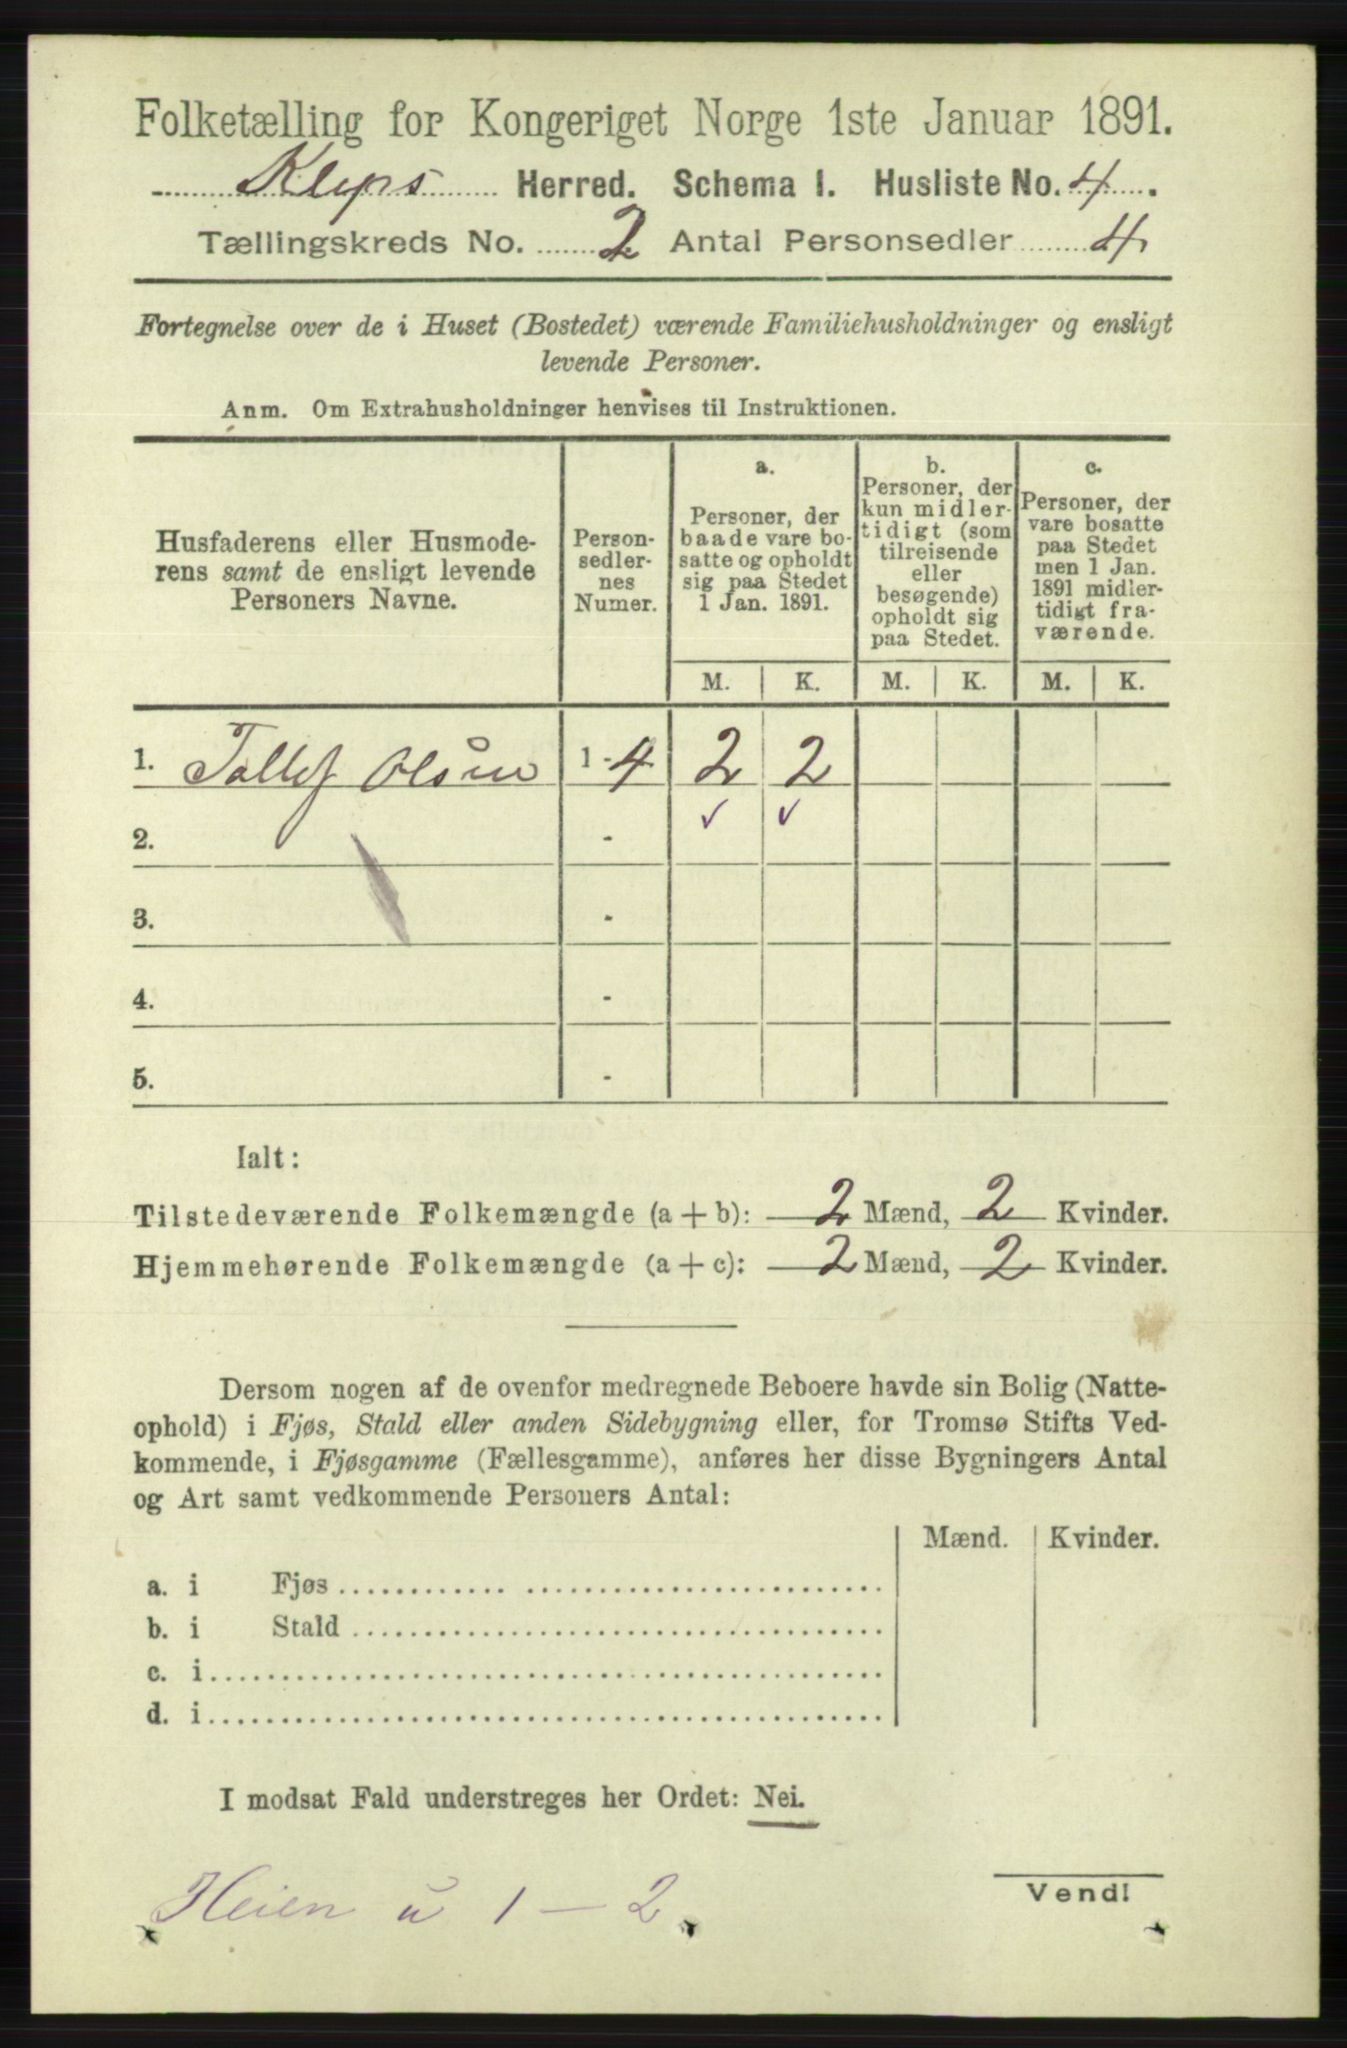 Folketælling for Kongeriget Norge 1ste Januar 1891.
Kleps Herred. Schema I. Husliste No. 4.
Tællingskreds No. 2 Antal Personsedler 4
Fortegnelse over de i Huset (Bostedet) værende Familiehusholdninger og ensligt
levende Personer.
Anm. Om Extrahusholdninger henvises til Instruktionen.
Husfaderens eller Husmode-
rens samt de ensligt levende
Personers Navne.
Person-
sedler-
nes
Numer.
a.
Personer, der
baade vare bo-
satte og opholdt
sig paa Stedet
1 Jan. 1891.
b.
Personer, der
kun midler-
tidigt (som
tilreisende
eller
besøgende)
opholdt sig
paa Stedet.
c.
Personer, der
vare bosatte
paa Stedet
men 1 Jan.
1891 midler-
tidigt fra-
værende.
M. K. M. K. M. K.
1. Tallef Olsen 1 - 4 2 2
2. - ✓ ✓
3. -
4. -
5. -
Ialt:
Tilstedeværende Folkemængde (a + b): 2 Mænd, 2 Kvinder.
Hjemmehørende Folkemængde (a + c): 2 Mænd, 2 Kvinder.
Dersom nogen af de ovenfor medregnede Beboere havde sin Bolig (Natte-
ophold) i Fjøs, Stald eller anden Sidebygning eller, for Tromsø Stifts Ved-
kommende, i Fjøsgamme (Fællesgamme), anføres her disse Bygningers Antal
og Art samt vedkommende Personers Antal:
Mænd. Kvinder.
a. i Fjøs
b. i Stald
c. i
d. i
I modsat Fald understreges her Ordet: Nei.
Heien u 1 - 2
Vend!